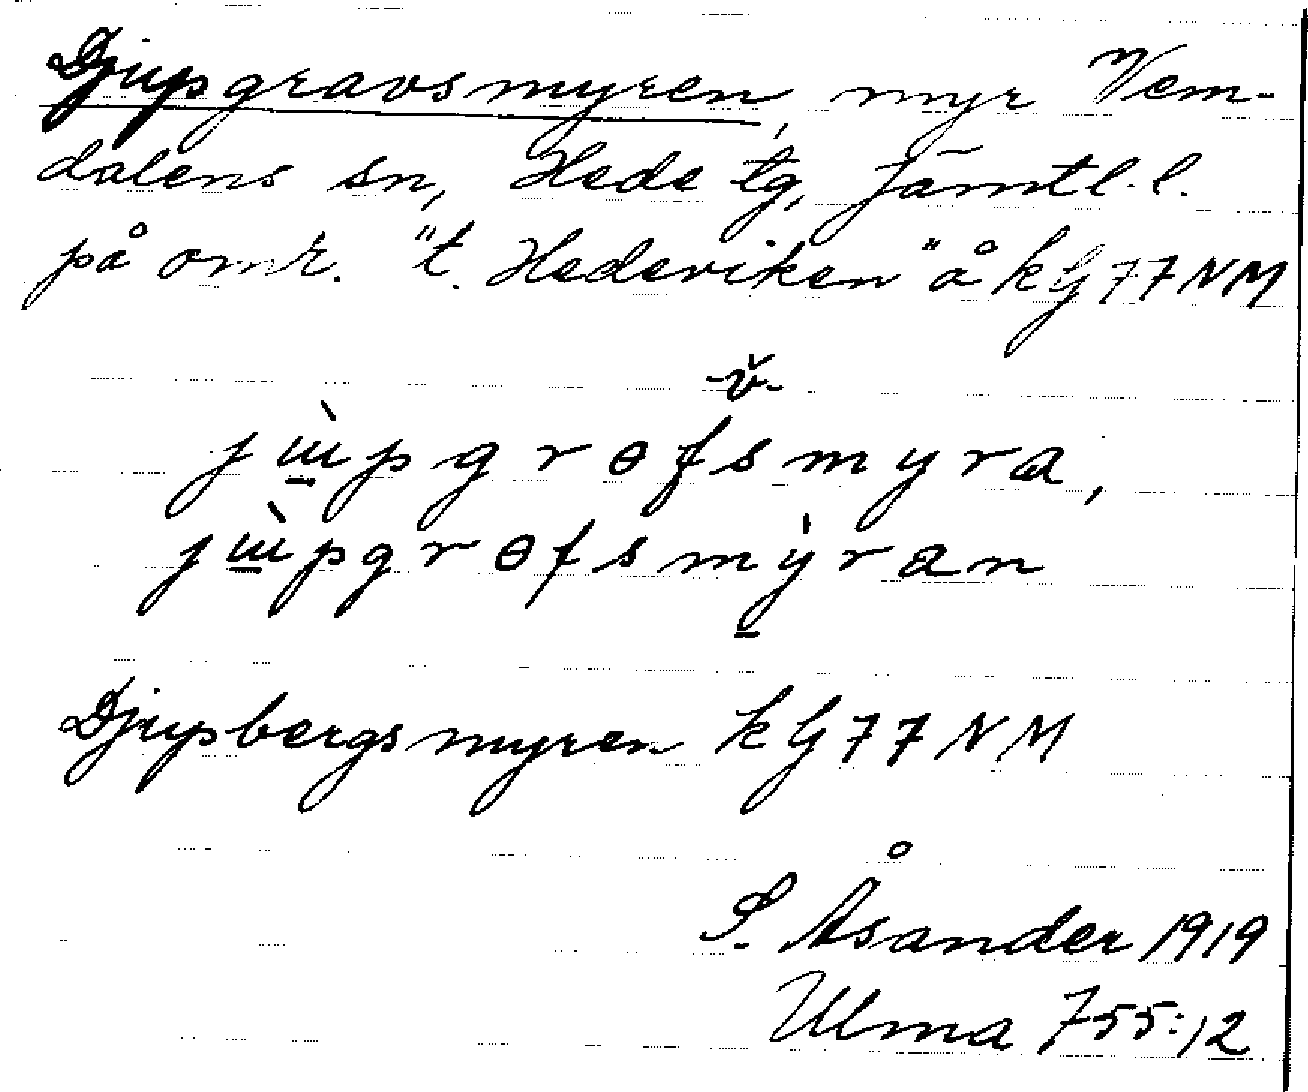 Djupgravsmyren, myr Vem-
dalens sn, Hede tg, Jämtl. l.
på omr. "t. Hedeviken" å kG77NM
-v̌-
jɯ̲̀pgrɵfsmyra,
jɯ̲̀pgrɵfsmỳ̲ran
Djupbergsmyren kG77NM
S. Åsander 1919
Ulma 755:12